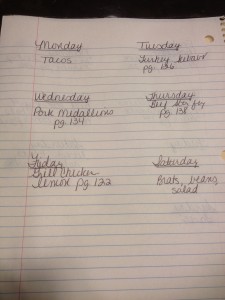 Monday
Tacos
Tuesday
Turkey kabobs
pg. 126
Wednesday
Pork Medallions
pg. 134
Thursday
Beef stir fry
pg. 138
Friday
Grill Chicken
Lemon pg 122
Saturday
Brats, beans
salad